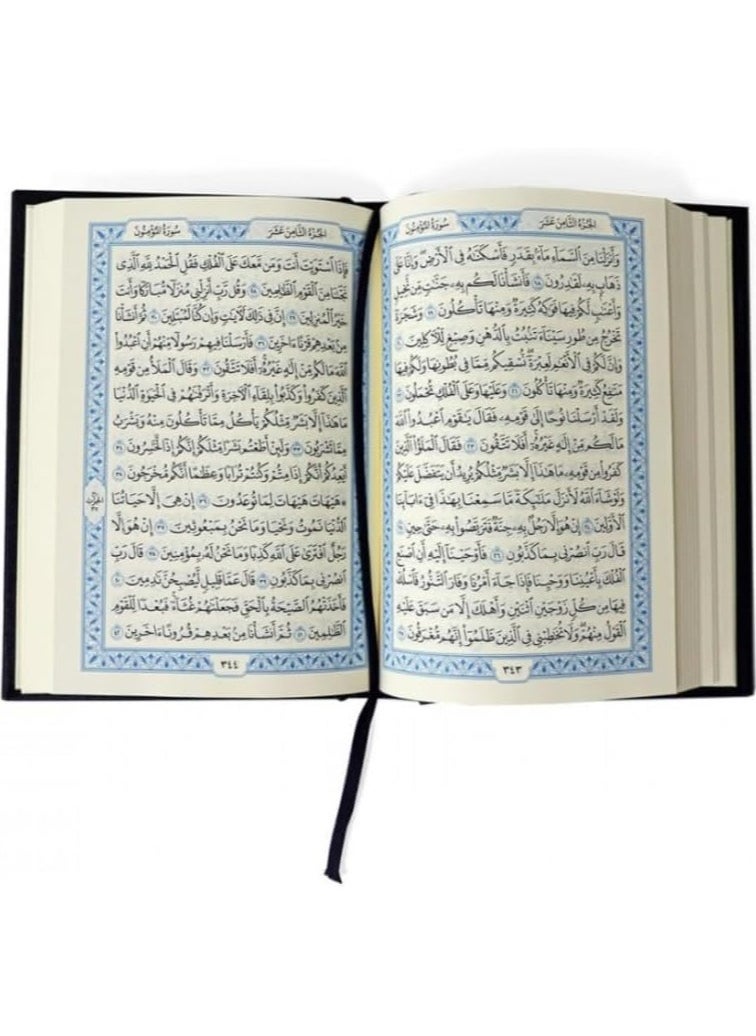 الجُزْءُ الثَّامِنَ عَشَرَ سُورَةُ المُؤْمِنُونَ
وَأَنزَلْنَا مِنَ ٱلسَّمَآءِ مَآءًۢ بِقَدَرٍ فَأَسْكَنَّٰهُ فِى ٱلْأَرْضِ ۖ وَإِنَّا عَلَىٰ
ذَهَابٍۭ بِهِۦ لَقَٰدِرُونَ ١٨ فَأَنشَأْنَا لَكُم بِهِۦ جَنَّٰتٍ مِّن نَّخِيلٍ
وَأَعْنَٰبٍ لَّكُمْ فِيهَا فَوَٰكِهُ كَثِيرَةٌ وَمِنْهَا تَأْكُلُونَ ١٩ وَشَجَرَةً
تَخْرُجُ مِن طُورِ سَيْنَآءَ تَنۢبُتُ بِٱلدُّهْنِ وَصِبْغٍ لِّلْـَٔاكِلِينَ ٢٠
وَإِنَّ لَكُمْ فِى ٱلْأَنْعَٰمِ لَعِبْرَةً ۖ نُّسْقِيكُم مِّمَّا فِى بُطُونِهَا وَلَكُمْ فِيهَا
مَنَٰفِعُ كَثِيرَةٌ وَمِنْهَا تَأْكُلُونَ ٢١ وَعَلَيْهَا وَعَلَى ٱلْفُلْكِ تُحْمَلُونَ ٢٢
وَلَقَدْ أَرْسَلْنَا نُوحًا إِلَىٰ قَوْمِهِۦ فَقَالَ يَٰقَوْمِ ٱعْبُدُوا۟ ٱللَّهَ
مَا لَكُم مِّنْ إِلَٰهٍ غَيْرُهُۥٓ ۖ أَفَلَا تَتَّقُونَ ٢٣ فَقَالَ ٱلْمَلَؤُا۟ ٱلَّذِينَ
كَفَرُوا۟ مِن قَوْمِهِۦ مَا هَٰذَآ إِلَّا بَشَرٌ مِّثْلُكُمْ يُرِيدُ أَن يَتَفَضَّلَ عَلَيْكُمْ
وَلَوْ شَآءَ ٱللَّهُ لَأَنزَلَ مَلَٰٓئِكَةً مَّا سَمِعْنَا بِهَٰذَا فِىٓ ءَابَآئِنَا
ٱلْأَوَّلِينَ ٢٤ إِنْ هُوَ إِلَّا رَجُلٌۢ بِهِۦ جِنَّةٌ فَتَرَبَّصُوا۟ بِهِۦ حَتَّىٰ حِينٍ ٢٥
قَالَ رَبِّ ٱنصُرْنِى بِمَا كَذَّبُونِ ٢٦ فَأَوْحَيْنَآ إِلَيْهِ أَنِ ٱصْنَعِ
ٱلْفُلْكَ بِأَعْيُنِنَا وَوَحْيِنَا فَإِذَا جَآءَ أَمْرُنَا وَفَارَ ٱلتَّنُّورُ ۙ فَٱسْلُكْ
فِيهَا مِن كُلٍّ زَوْجَيْنِ ٱثْنَيْنِ وَأَهْلَكَ إِلَّا مَن سَبَقَ عَلَيْهِ
ٱلْقَوْلُ مِنْهُمْ ۖ وَلَا تُخَٰطِبْنِى فِى ٱلَّذِينَ ظَلَمُوٓا۟ ۖ إِنَّهُم مُّغْرَقُونَ ٢٧
٣٤٣
الجُزْءُ الثَّامِنَ عَشَرَ سُورَةُ المُؤْمِنُونَ
فَإِذَا ٱسْتَوَيْتَ أَنتَ وَمَن مَّعَكَ عَلَى ٱلْفُلْكِ فَقُلِ ٱلْحَمْدُ لِلَّهِ ٱلَّذِى
نَجَّىٰنَا مِنَ ٱلْقَوْمِ ٱلظَّٰلِمِينَ ٢٨ وَقُل رَّبِّ أَنزِلْنِى مُنزَلًا مُّبَارَكًا وَأَنتَ
خَيْرُ ٱلْمُنزِلِينَ ٢٩ إِنَّ فِى ذَٰلِكَ لَءَايَٰتٍ وَإِن كُنَّا لَمُبْتَلِينَ ٣٠ ثُمَّ أَنشَأْنَا
مِنۢ بَعْدِهِمْ قَرْنًا ءَاخَرِينَ ٣١ فَأَرْسَلْنَا فِيهِمْ رَسُولًا مِّنْهُمْ أَنِ ٱعْبُدُوا۟
ٱللَّهَ مَا لَكُم مِّنْ إِلَٰهٍ غَيْرُهُۥٓ ۖ أَفَلَا تَتَّقُونَ ٣٢ وَقَالَ ٱلْمَلَأُ مِن قَوْمِهِ
ٱلَّذِينَ كَفَرُوا۟ وَكَذَّبُوا۟ بِلِقَآءِ ٱلْءَاخِرَةِ وَأَتْرَفْنَٰهُمْ فِى ٱلْحَيَوٰةِ ٱلدُّنْيَا
مَا هَٰذَآ إِلَّا بَشَرٌ مِّثْلُكُمْ يَأْكُلُ مِمَّا تَأْكُلُونَ مِنْهُ وَيَشْرَبُ
مِمَّا تَشْرَبُونَ ٣٣ وَلَئِنْ أَطَعْتُم بَشَرًا مِّثْلَكُمْ إِنَّكُمْ إِذًا لَّخَٰسِرُونَ ٣٤
أَيَعِدُكُمْ أَنَّكُمْ إِذَا مِتُّمْ وَكُنتُمْ تُرَابًا وَعِظَٰمًا أَنَّكُم مُّخْرَجُونَ ٣٥
۞ هَيْهَاتَ هَيْهَاتَ لِمَا تُوعَدُونَ ٣٦ إِنْ هِىَ إِلَّا حَيَاتُنَا
ٱلدُّنْيَا نَمُوتُ وَنَحْيَا وَمَا نَحْنُ بِمَبْعُوثِينَ ٣٧ إِنْ هُوَ إِلَّا
رَجُلٌ ٱفْتَرَىٰ عَلَى ٱللَّهِ كَذِبًا وَمَا نَحْنُ لَهُۥ بِمُؤْمِنِينَ ٣٨ قَالَ رَبِّ
ٱنصُرْنِى بِمَا كَذَّبُونِ ٣٩ قَالَ عَمَّا قَلِيلٍ لَّيُصْبِحُنَّ نَٰدِمِينَ ٤٠
فَأَخَذَتْهُمُ ٱلصَّيْحَةُ بِٱلْحَقِّ فَجَعَلْنَٰهُمْ غُثَآءً ۚ فَبُعْدًا لِّلْقَوْمِ
ٱلظَّٰلِمِينَ ٤١ ثُمَّ أَنشَأْنَا مِنۢ بَعْدِهِمْ قُرُونًا ءَاخَرِينَ ٤٢
الحزب
٣٥
٣٤٤